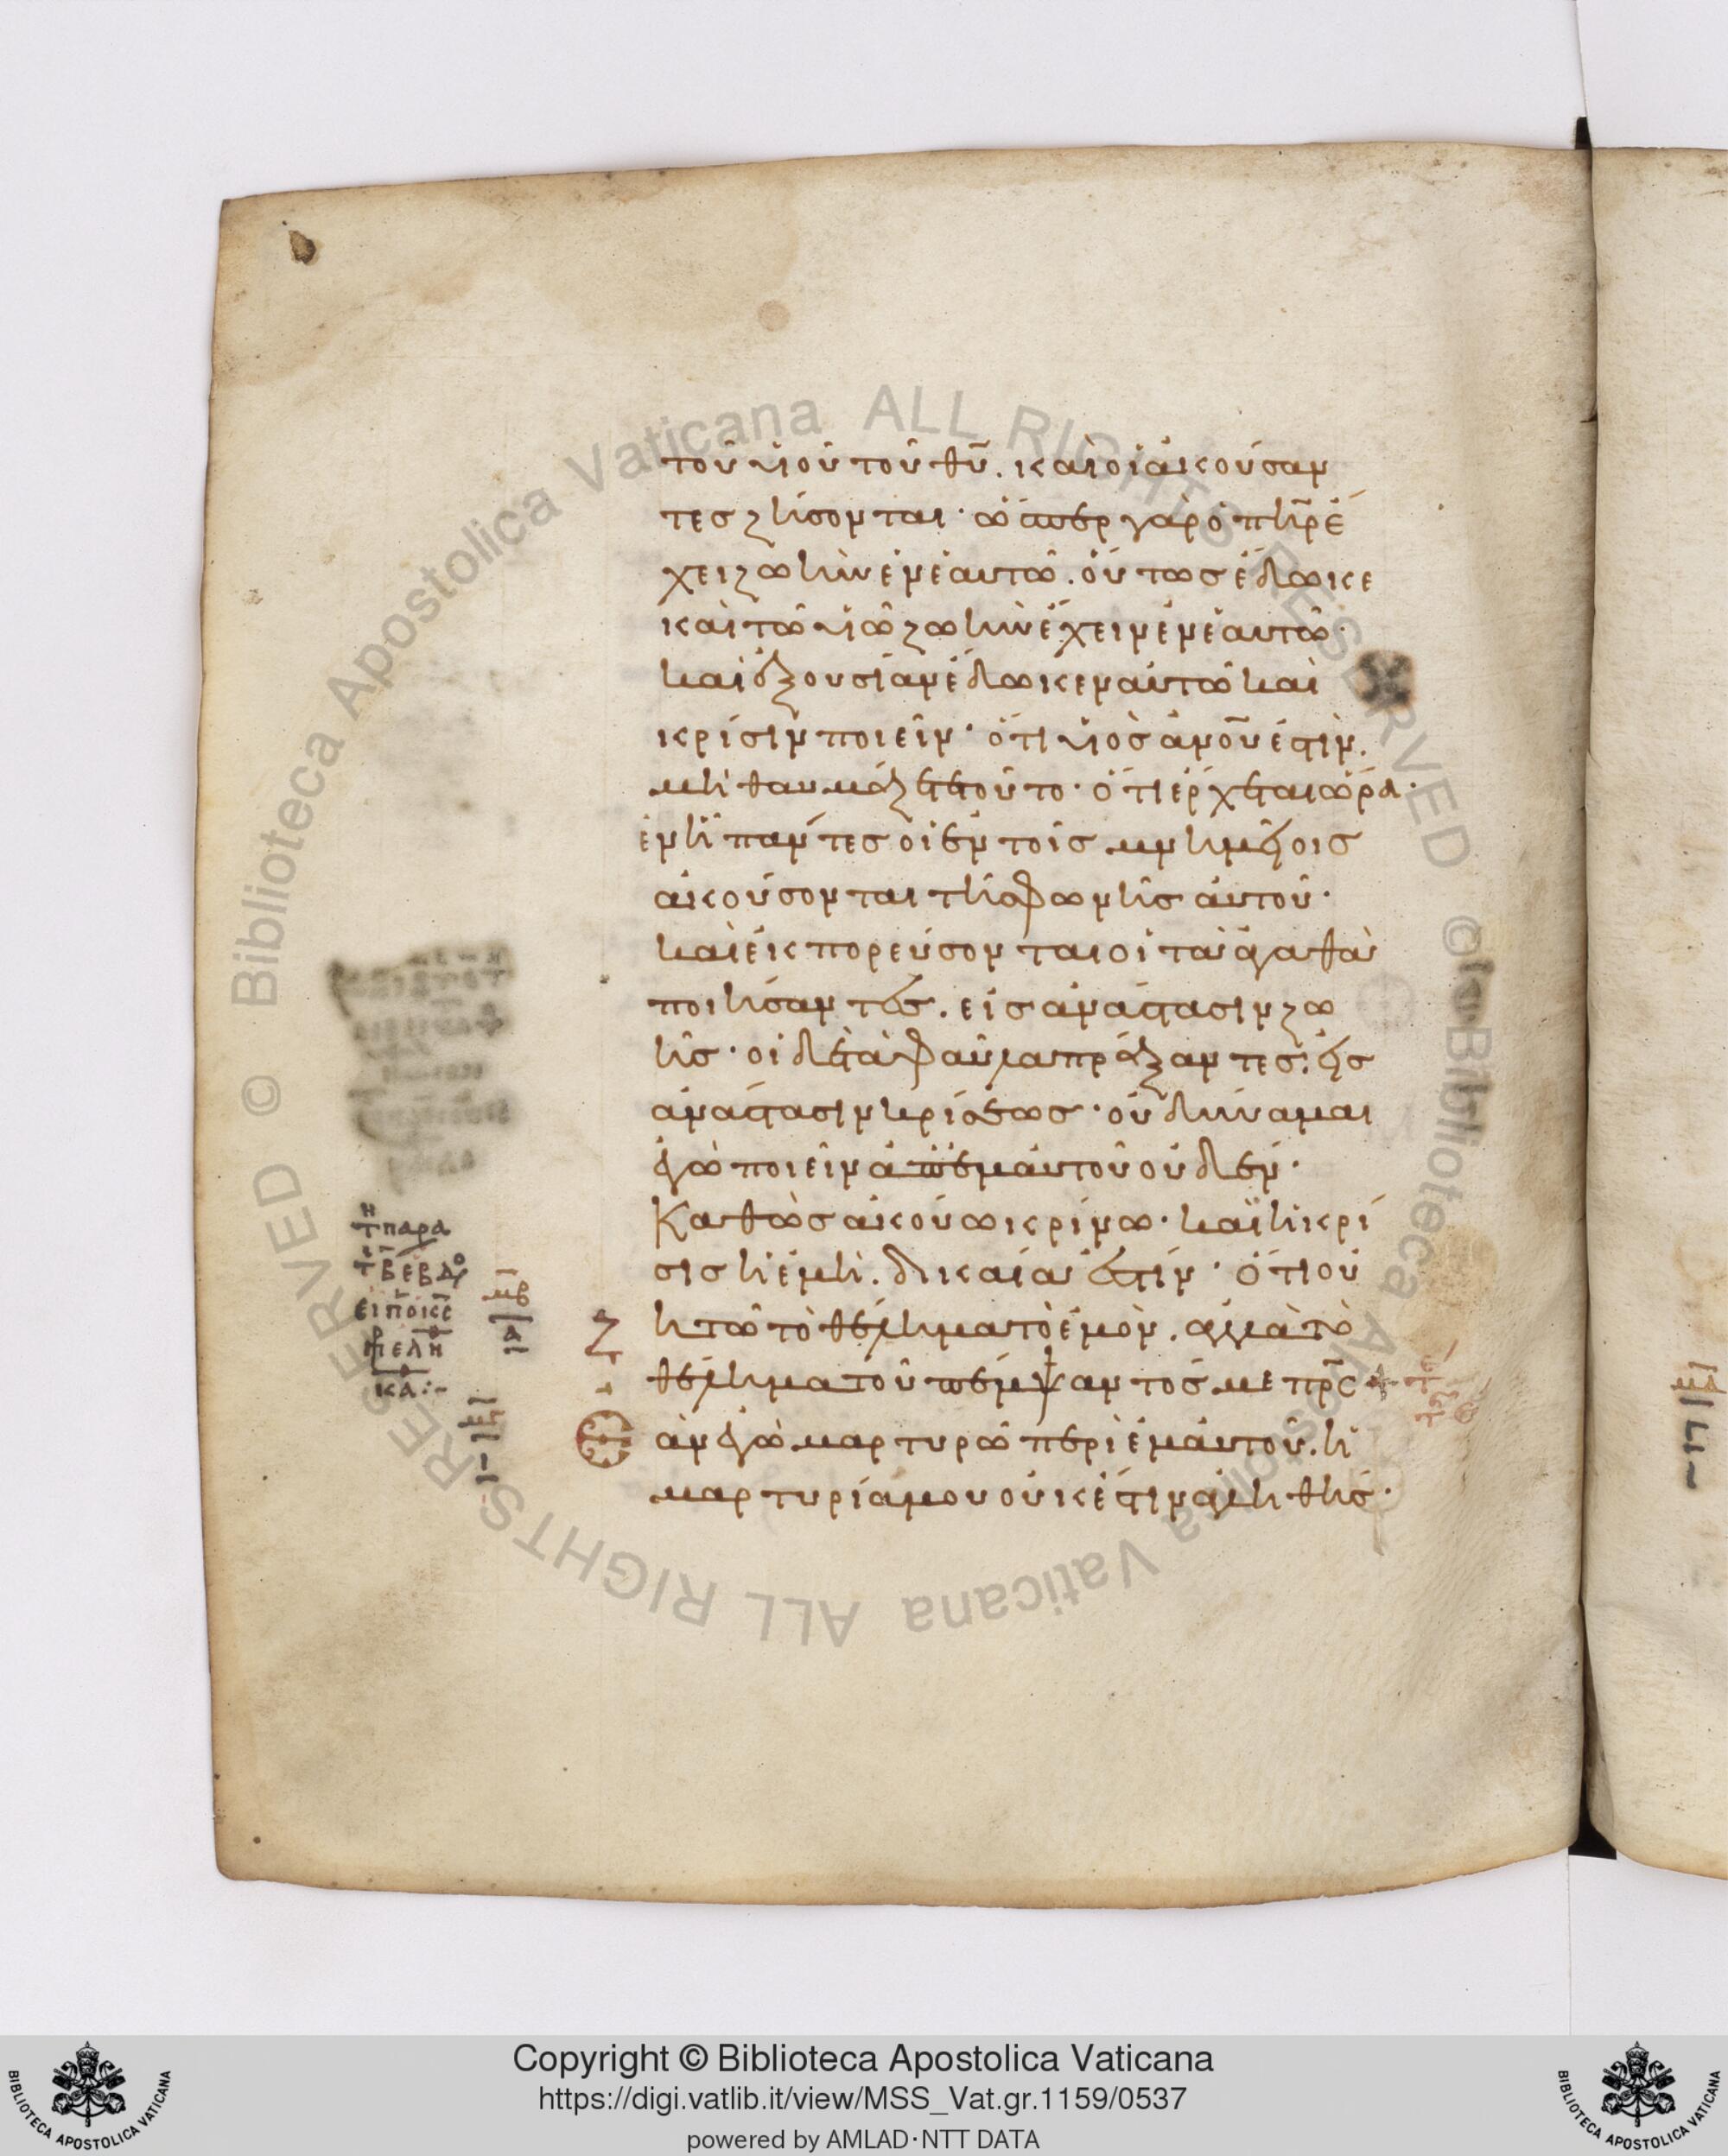 τοῦ υἱοῦ τοῦ θῡ. καὶ οἱ ἀκούσαν
τες ζήσονται· ὥσπερ γὰρ ὁ πη̄ρ ἔ
χει ζωὴν ἐν ἑαυτῶ. οὕτως ἔδωκε
καὶ τῶ υἱῶ ζωὴν ἔχειν ἐν ἑαυτῶ·
καὶ ἐξουσίαν ἔδωκεν αὐτῶ καὶ
κρίσιν ποιεῖν· ὅτι υἱὸς ἀνοῡ ἐστὶν.
μὴ θαυμάζετε τοῦτο· ὅτι ἔρχεται ὥρα·
ἐν ἧ πάντες οἱ ἐν τοῖς μνημείοις
ἀκούσονται τῆς φωνῆς αὐτοῦ·
καὶ ἐκπορεύσονται οἱ τὰ ἀγαθὰ
ποιήσαντες. εἰς ἀνάστασιν ζω
ῆς· οἱ δὲ τὰ φαῦλα πράξαντες. εἰς
ἀνάστασιν κρίσεως· οὐ δύναμαι
ἐγὼ ποιεῖν ἀπ' ἐμαυτοῦ οὐδέν·
Καθὼς ἀκούω κρίνω· καὶ ἡ κρί
σις ἡ ἐμὴ. δικαία ἐστίν· ὅτι οὐ
ζητῶ τὸ θέλημα τὸ ἐμὸν. ἀλλὰ τὸ
θέλημα τοῦ πέμψαντός με πρ̄ς
Ἐὰν ἐγὼ μαρτυρῶ περὶ ἐμαυτοῦ. ἡ
μαρτυρία μου οὐκ ἔστιν ἀληθής·
μβ
α
Copyright © Biblioteca Apostolica Vaticana
https://digi.vatlib.it/view/MSS_Vat.gr.1159/0537
powered by AMLAD·NTT DATA
BIBLIOTECA APOSTOLICA VATICANA
BIBLIOTECA APOSTOLICA VATICANA
© Biblioteca Apostolica Vaticana ALL RIGHTS RESERVED
© Biblioteca Apostolica Vaticana ALL RIGHTS RESERVED